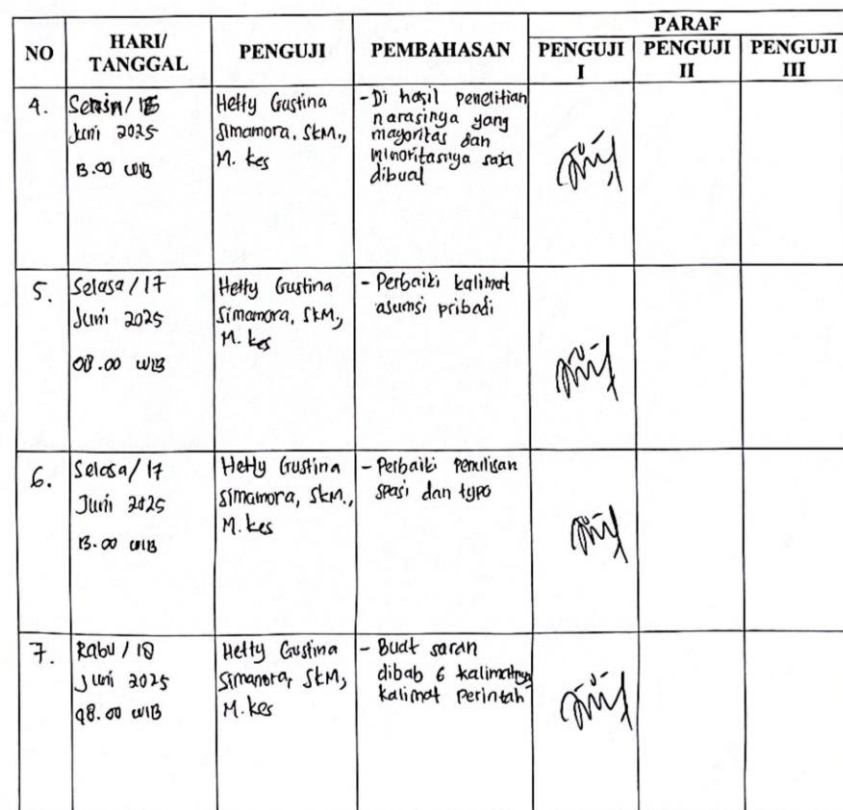 NO
HARI/
TANGGAL
PENGUJI
PEMBAHASAN
PARAF
PENGUJI
I
PENGUJI
II
PENGUJI
III
4.
Senin/ 16
Juni 2025
13.00 WIB
Hetty Gustina
Simamora, SKM.,
M. Kes
- Di hasil penelitian
narasinya yang
mayoritas dan
minoritasnya saja
dibuat
5.
Selasa / 17
Juni 2025
08.00 WIB
Hetty Gustina
Simamora, SKM.,
M. Kes
- Perbaiki kalimat
asumsi pribadi
6.
Selasa / 17
Juni 2025
13.00 WIB
Hetty Gustina
Simamora, SKM.,
M. Kes
- Perbaiki penulisan
spasi dan typo
7.
Rabu / 18
Juni 2025
08.00 WIB
Hetty Gustina
Simamora, SKM,
M. Kes
- Buat saran
dibab 6 kalimatnya
kalimat perintah